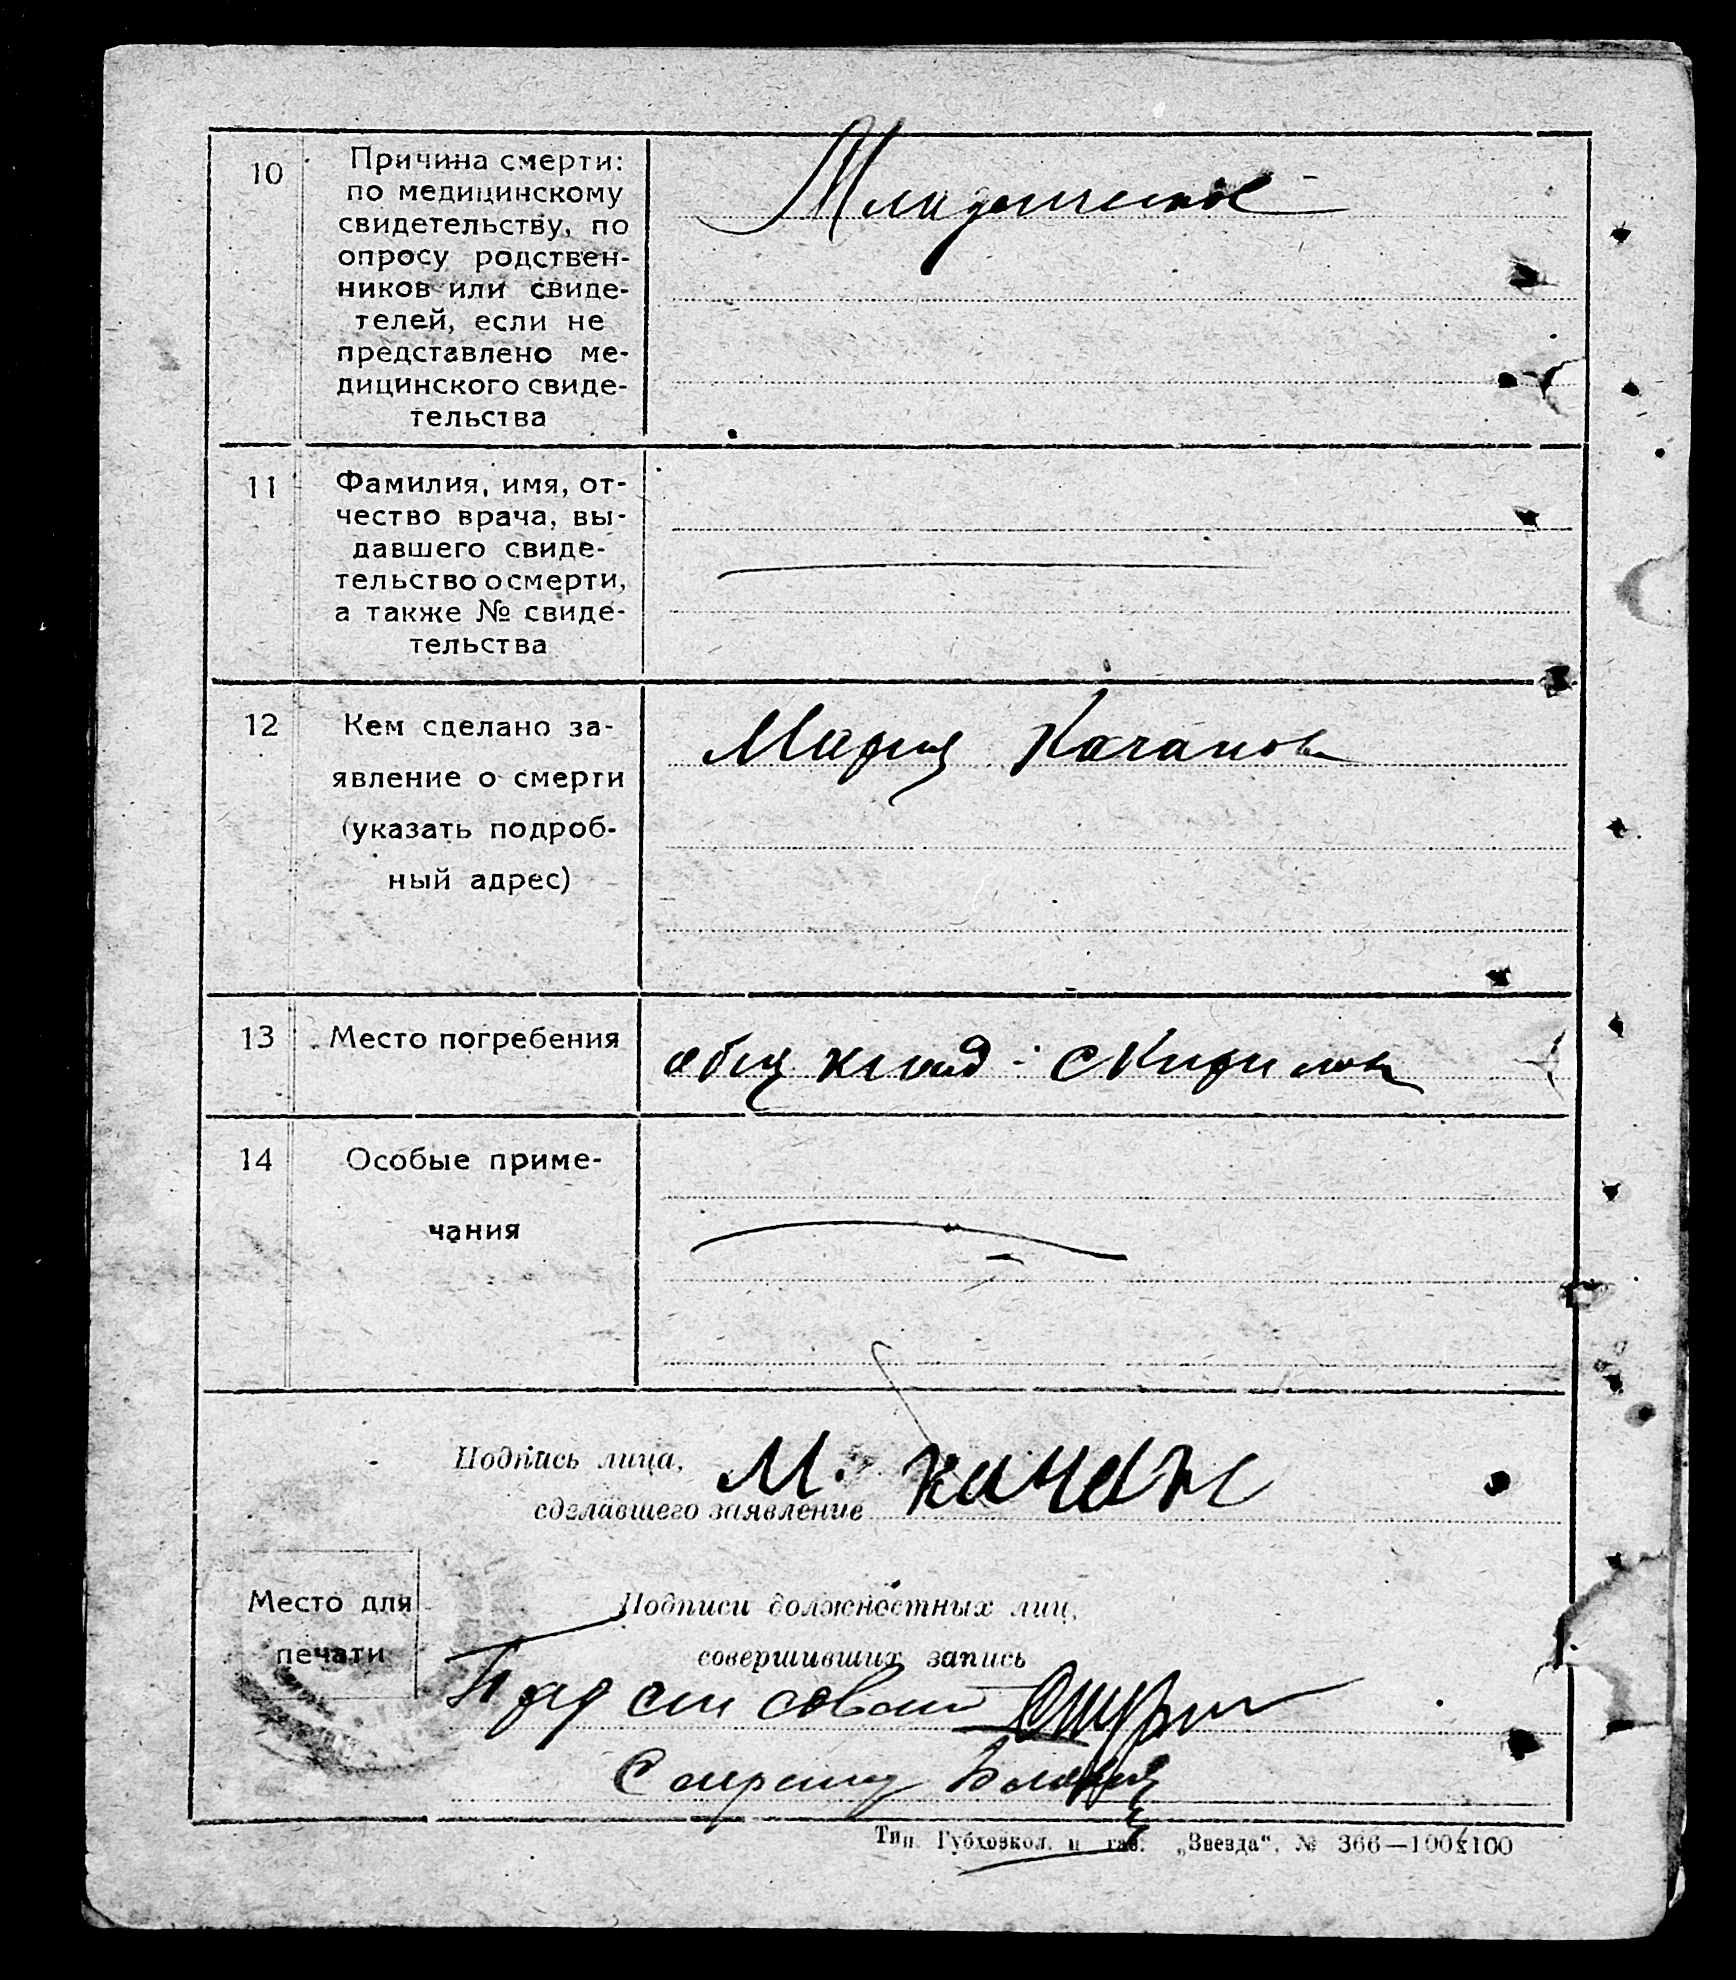 10
Причина смерти:
по медицинскому
свидетельству, по
опросу родствен-
ников или свиде-
телей, если не
представлено ме-
дицинского свиде-
тельства
Младенческ
11
Фамилия, имя, от-
чество врача, вы-
давшего свиде-
тельство о смерти,
а также № свиде-
тельства
12
Кем сделано за-
явление о смерти
(указать подроб-
ный адрес)
Мария Качанов
13
Место погребения
общ клад - с Кирилов
14
Особые приме-
чания
Подпись лица,
сделавшего заявление
М. качан
Место для
печати
Подписи должностных лиц,
совершивших запись
Пред
Секретарь
Тип. Губхозкол. и газ. „Звезда“, № 366—100х100